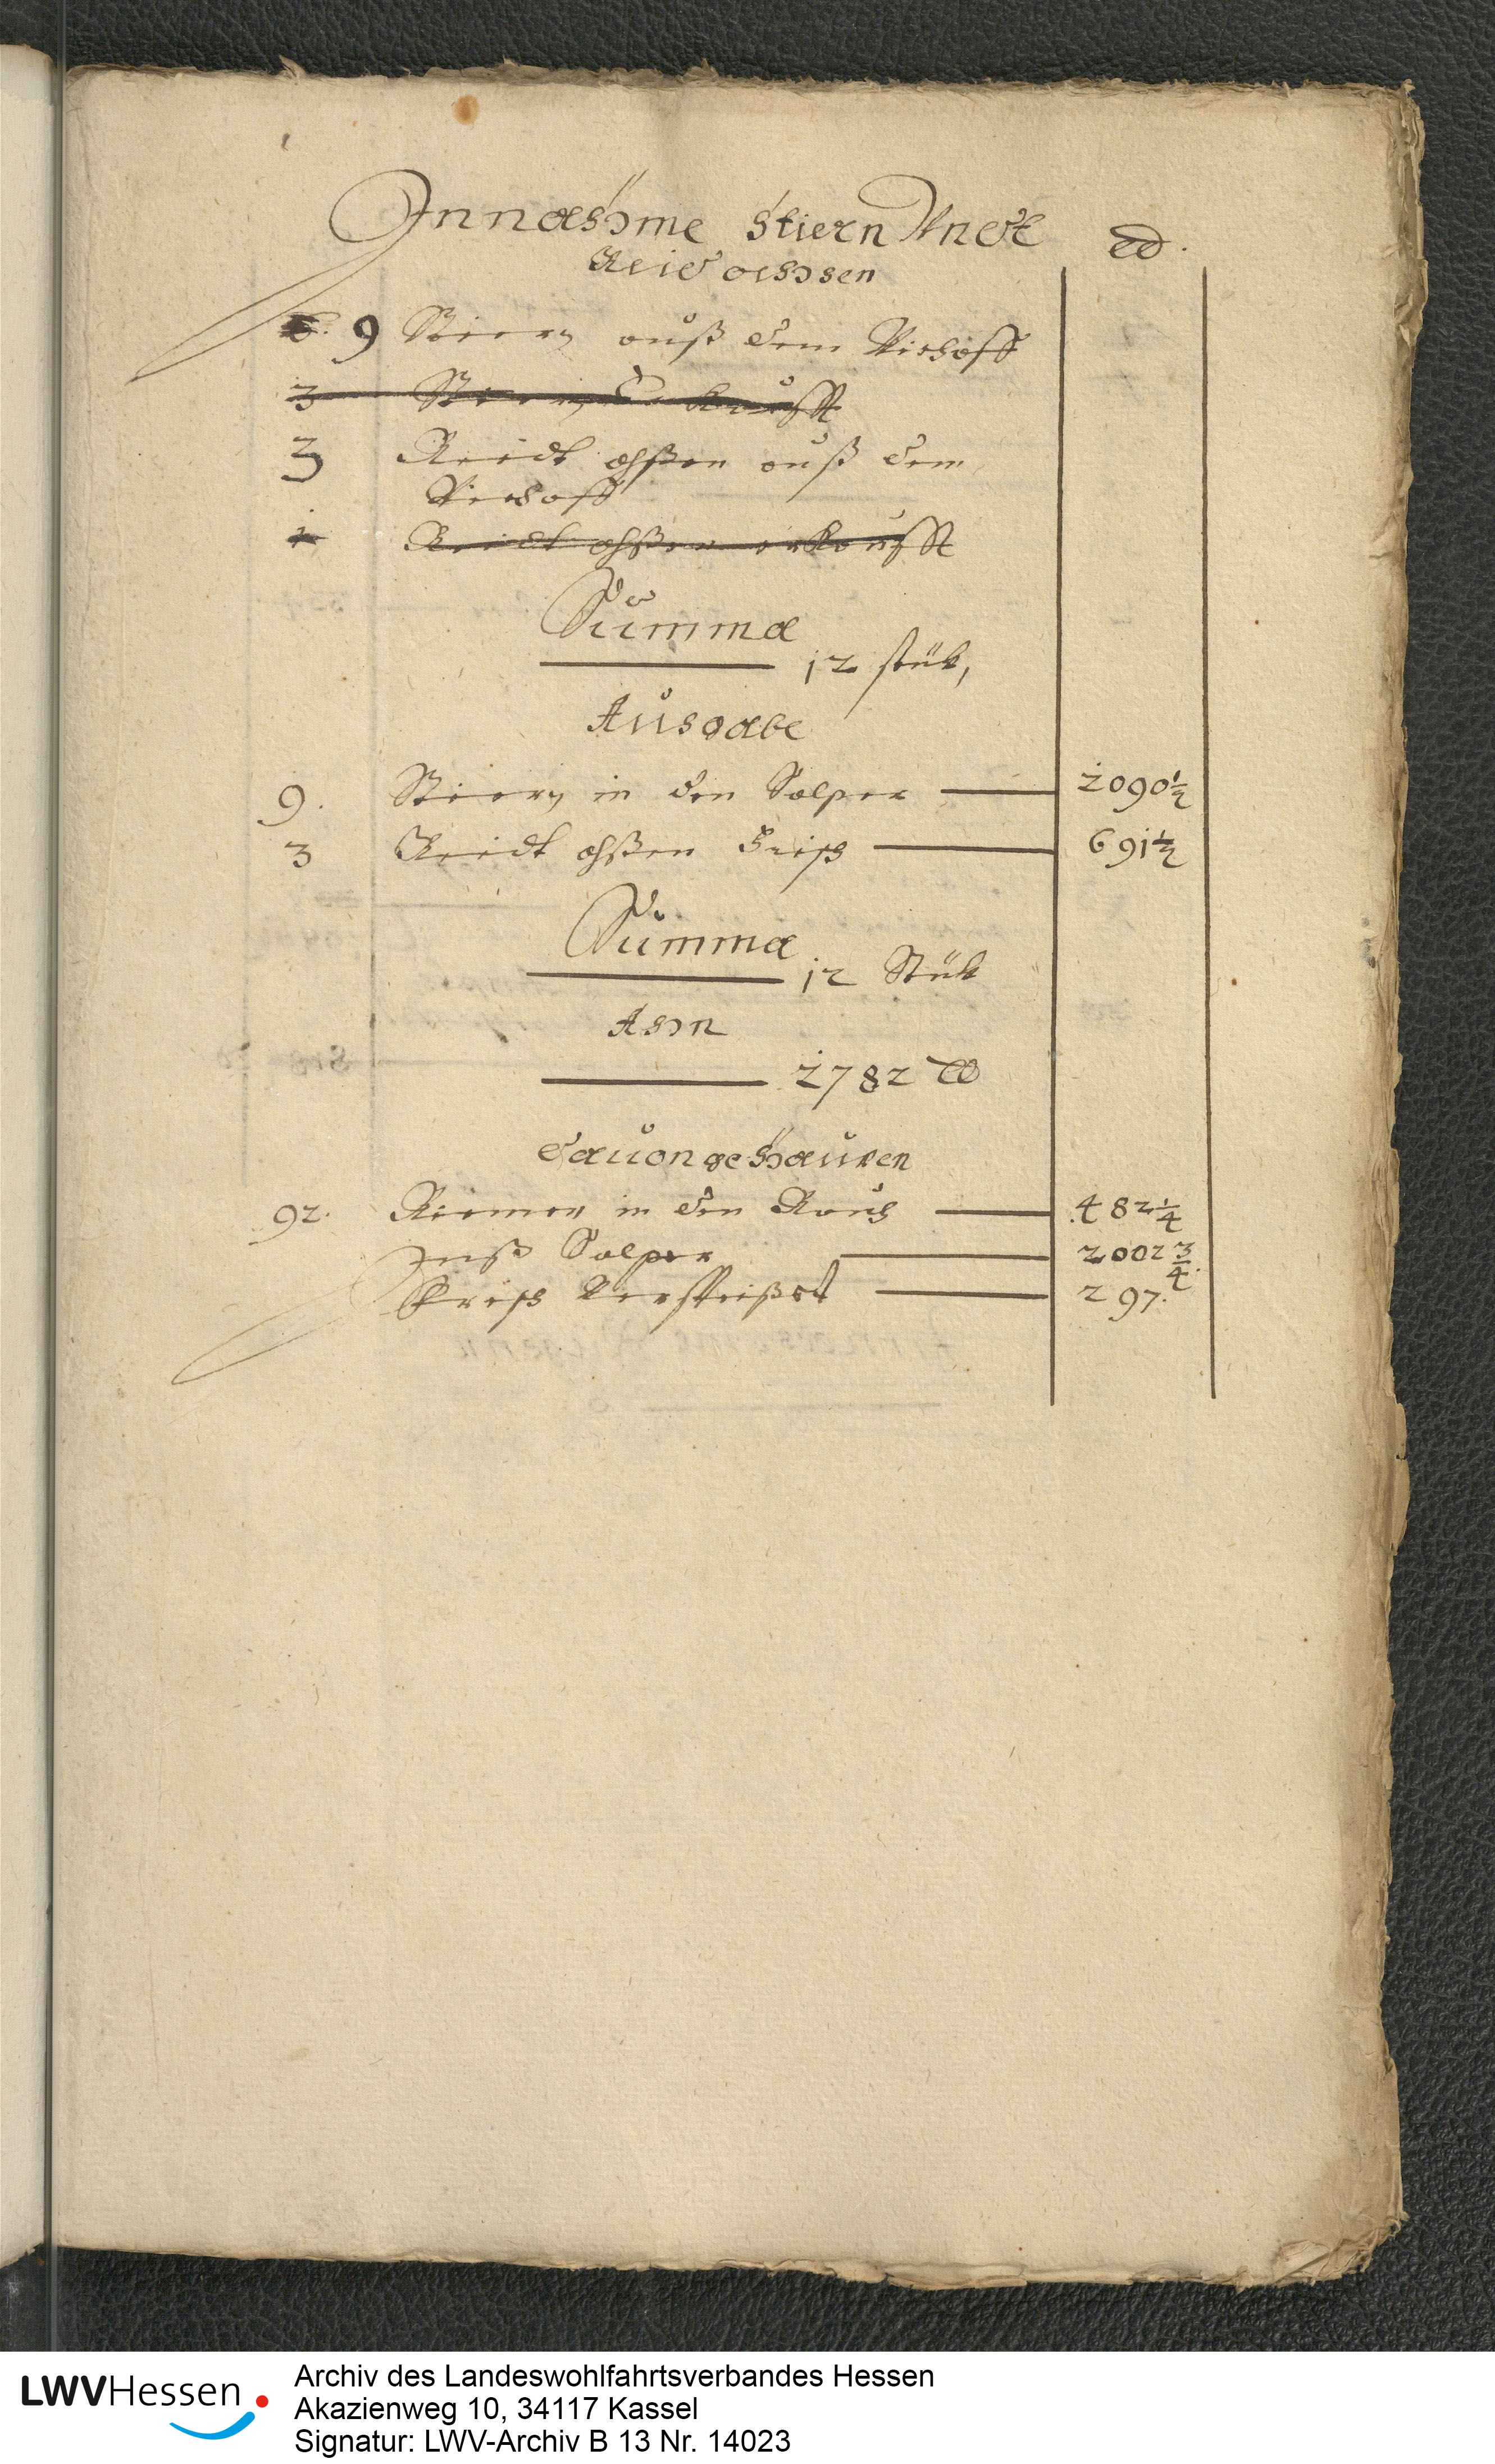 Innahme Stiern Undt ℔.
Reid ochsen
9 Stiern auß dem Viehoff
3 Stiern erkaufft
3 Reidt ohßen auß dem
Viehoff
1 Reidt ohßen erkaufft
Summa
12 stük,
Ausgabe
9. Stiern in den Salper 2090½
3 Reidt ohßen frisch 691½
Summa
12 Stük
Ahn
2782 ℔
dauon gehauwen
92. Riemen in den Rauch 482¼
Inß Salper 2002¾.
frisch Verspeißet 297.
LWVHessen
Archiv des Landeswohlfahrtsverbandes Hessen
Akazienweg 10, 34117 Kassel
Signatur: LWV-Archiv B 13 Nr. 14023